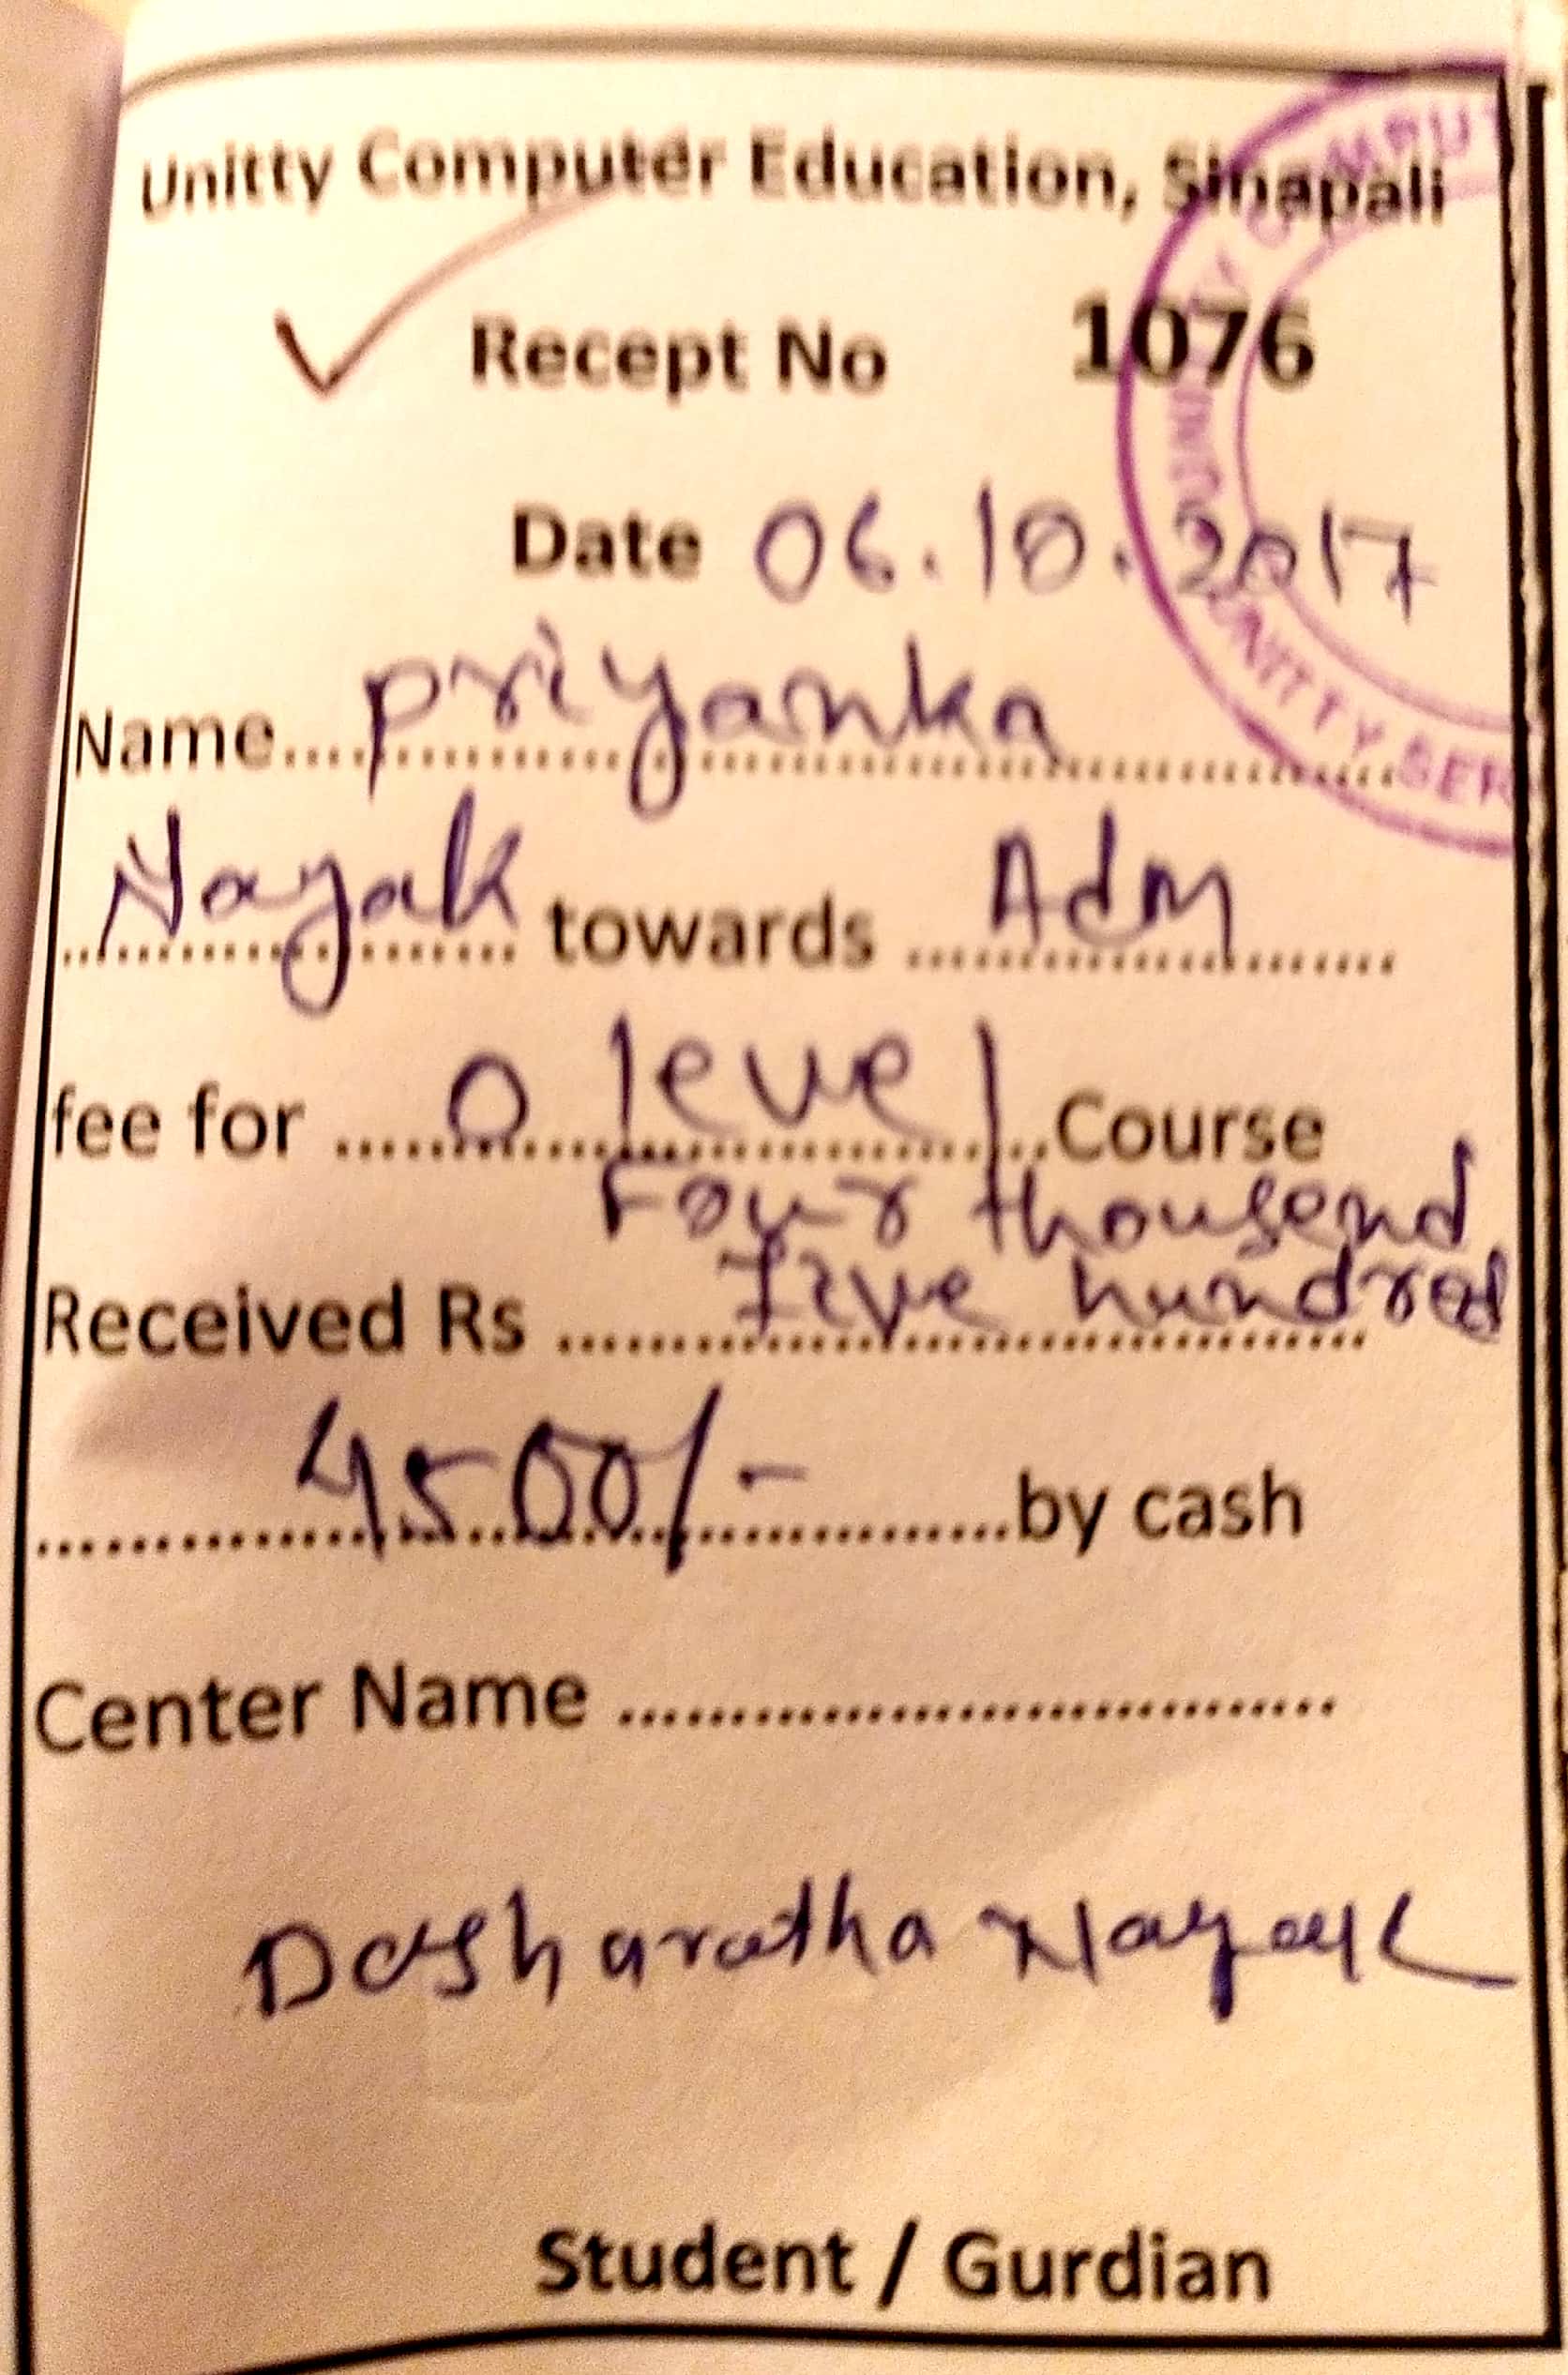 Unitty Computer Education, Sinapali
Recept No 1076
Date 06.10.2017
Name.... Priyanka
Nayak towards Adm
fee for ..... O level Course
Four thousend
Received Rs ..... Five hundred
4500/- by cash
Center Name .................................
Dasharatha Nayak
Student / Gurdian
UNITTY SER